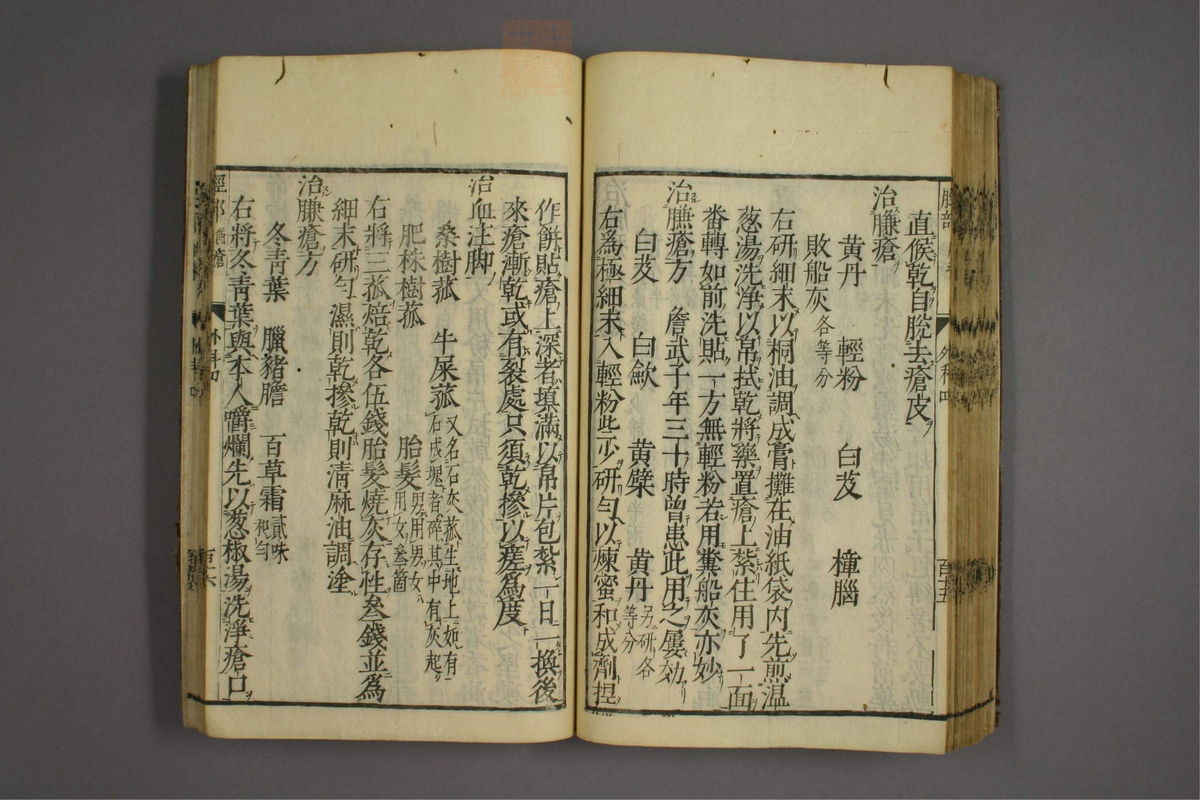 直候乾自脫去瘡皮
治臁瘡
黄丹 輕粉 白芨 樟腦
敗船灰各等分
右研細末以桐油調成膏攤在油紙袋内先煎温
葱湯洗淨以帛拭乾將藥置瘡上紮住用了一面
番轉如前洗貼一方無輕粉若用糞船灰亦妙
治臁瘡方 詹武子年三十時曾患此用之屢効
白芨 白歛 黄檗 黄丹另研各等分
右為極細末入輕粉些少研匀以煉蜜和成劑捏
作餅貼瘡上深者填滿以帛片包紮一日一換後
來瘡漸乾或有裂處只須乾摻以瘥為度
治血注脚
桑樹菰 牛屎菰又名石灰菰生地上如有石成塊者碎其中有灰起
肥株樹菰 胎髮男用男女用女叁箇
右將三菰焙乾各伍錢胎髮燒灰存性叁錢並為
細末研匀濕則乾摻乾則清麻油調塗
治臁瘡方
冬青葉 臘豬膽 百草霜貳味和匀
右將冬青葉與本人嚼爛先以葱椒湯洗淨瘡口
外科四
百五
外科四
百六